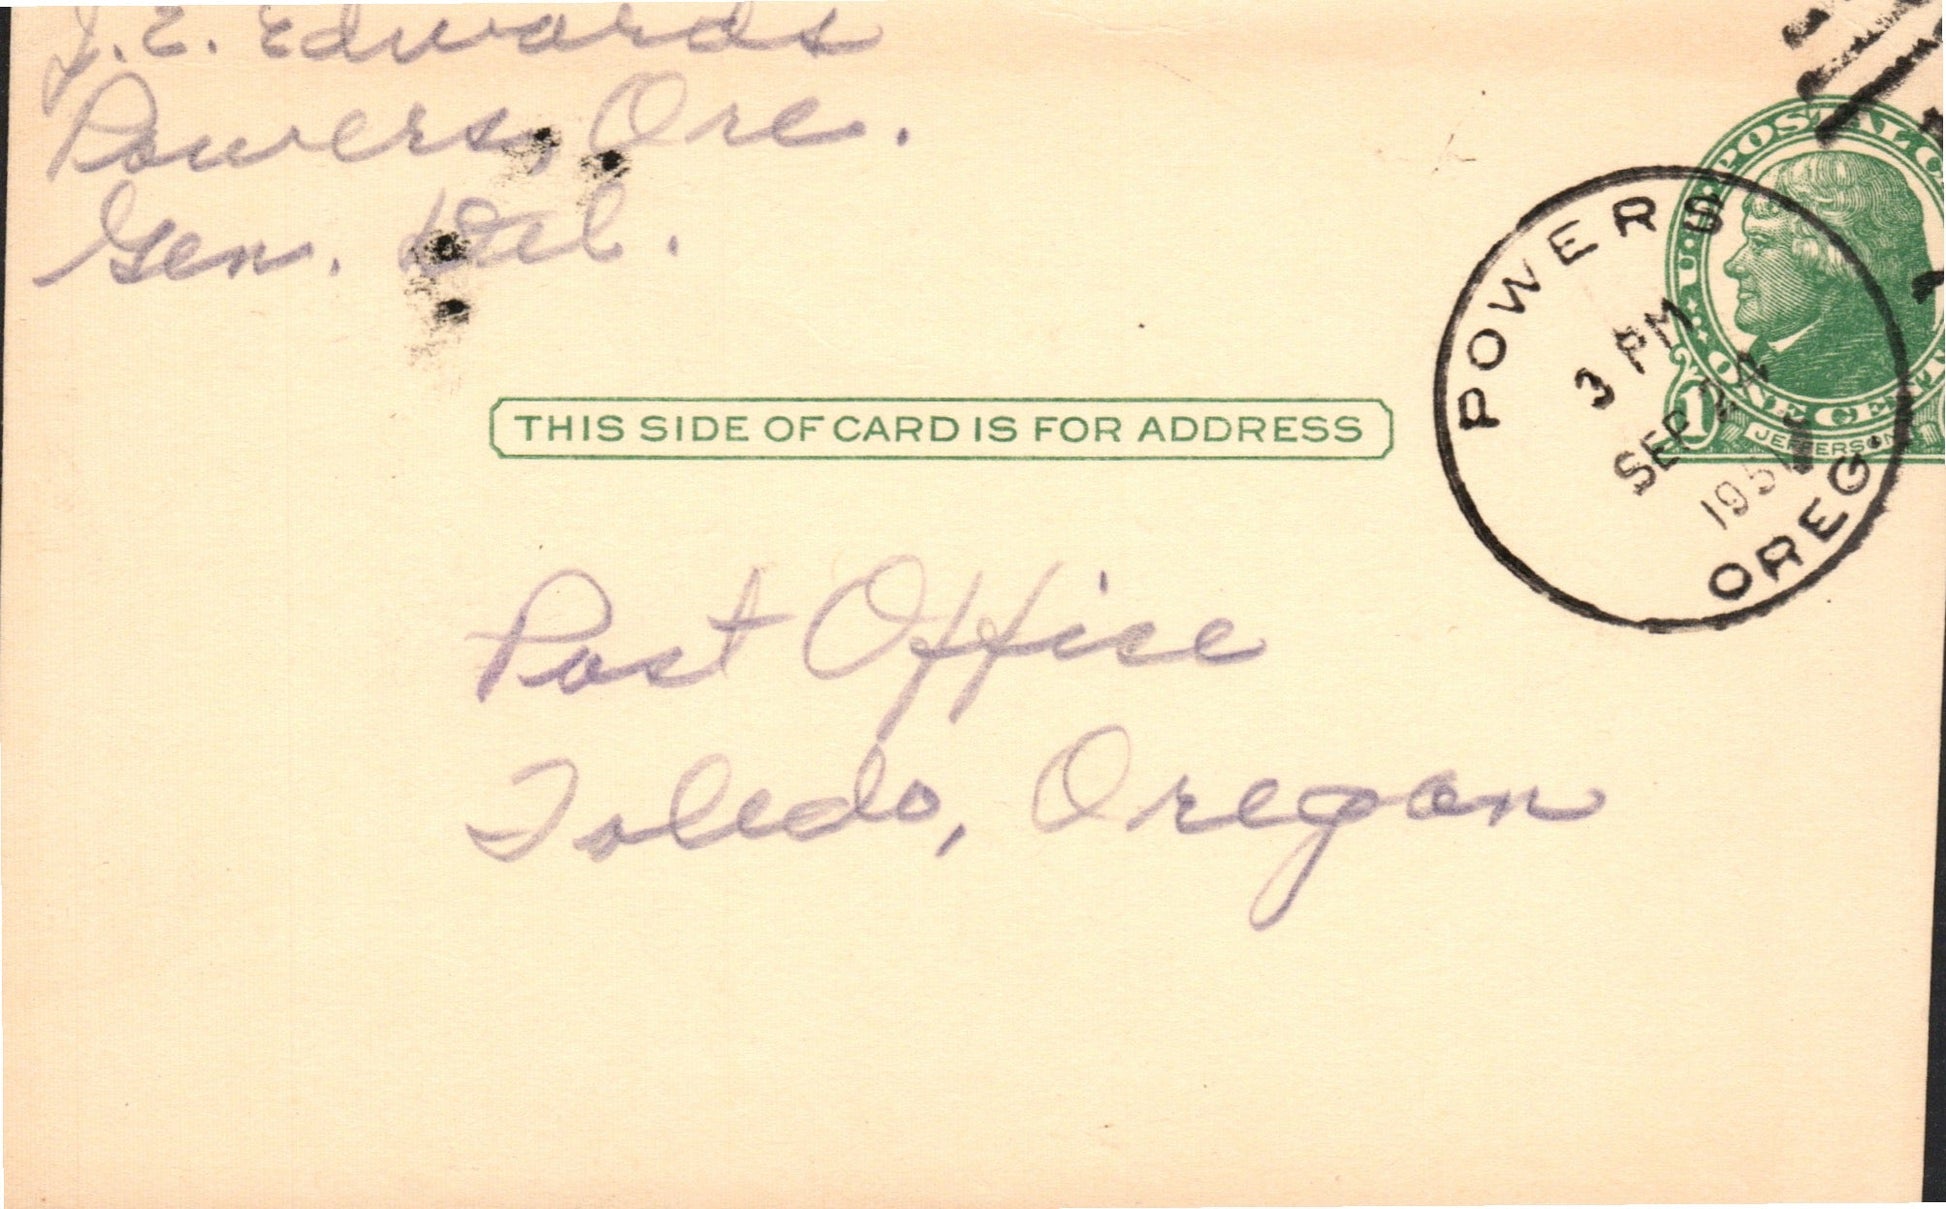 J. E. Edwards
Powers, Ore.
Gen. Del.
U.S. POSTAL
ONE CENT
1
JEFFERSON
POWERS
3 PM
SEP
195
OREG.
THIS SIDE OF CARD IS FOR ADDRESS
Post Office
Toledo, Oregon